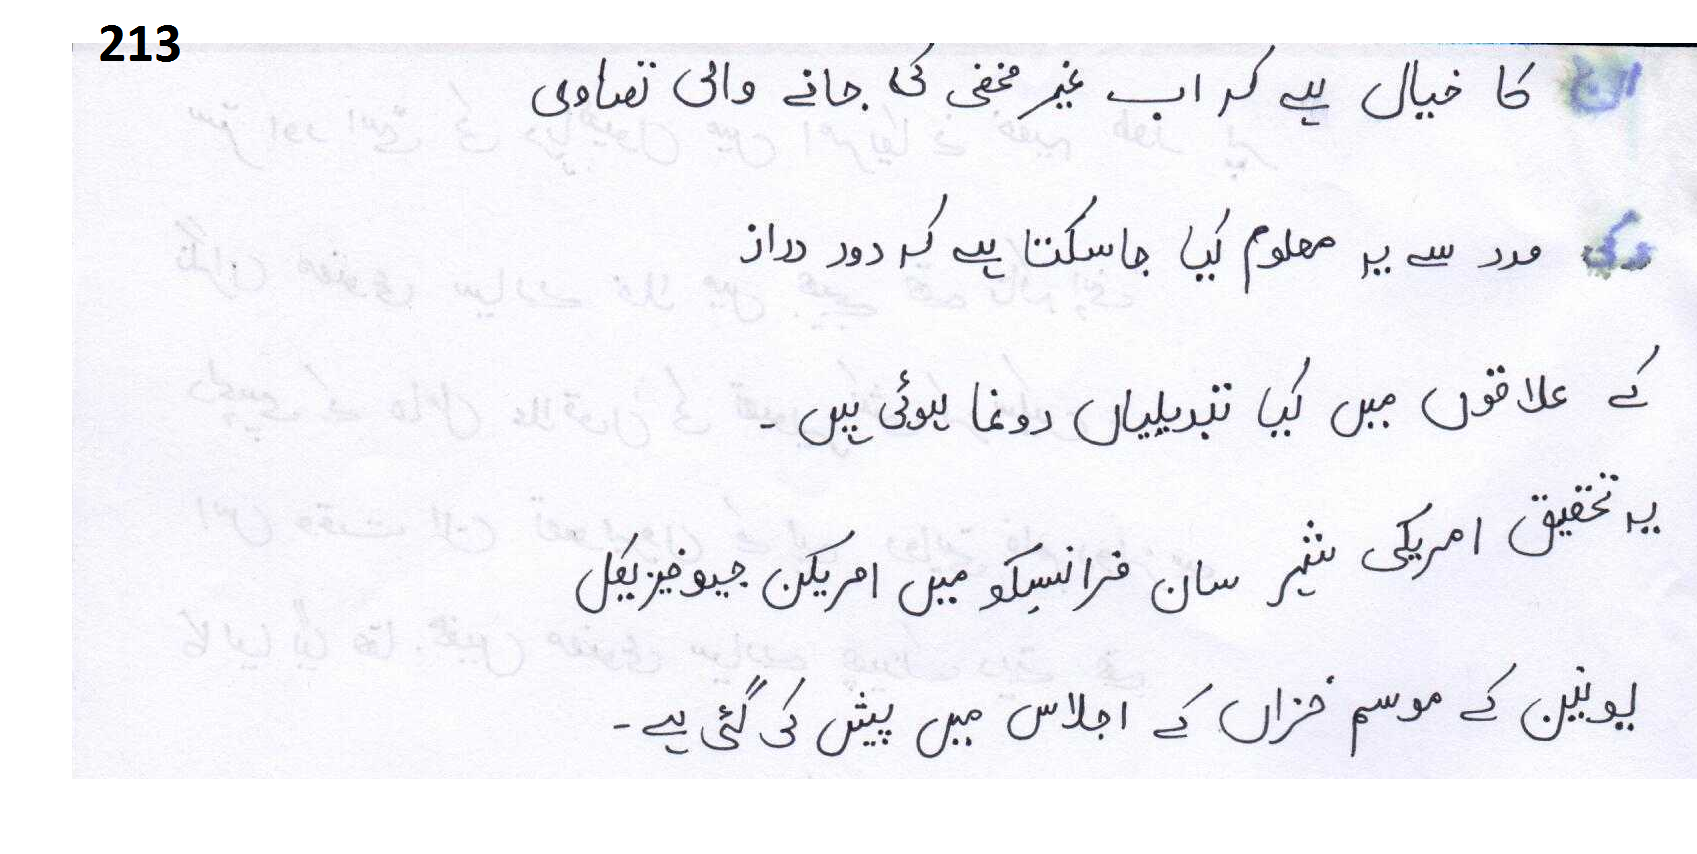 213
ان کا خیال ہے کہ اب غیر مخفی کی جانے والی تصاوی
کی مدد سے یہ معلوم کیا جاسکتا ہے کہ دور دراز
کے علاقوں میں کیا تبدیلیاں دونما ہوئی ہیں ۔
یہ تحقیق امریکی شہر سان فرانسسکو میں امریکن جیوفیزیکل
یونین کے موسم خزاں کے اجلاس میں پیش کی گئی ہے ۔